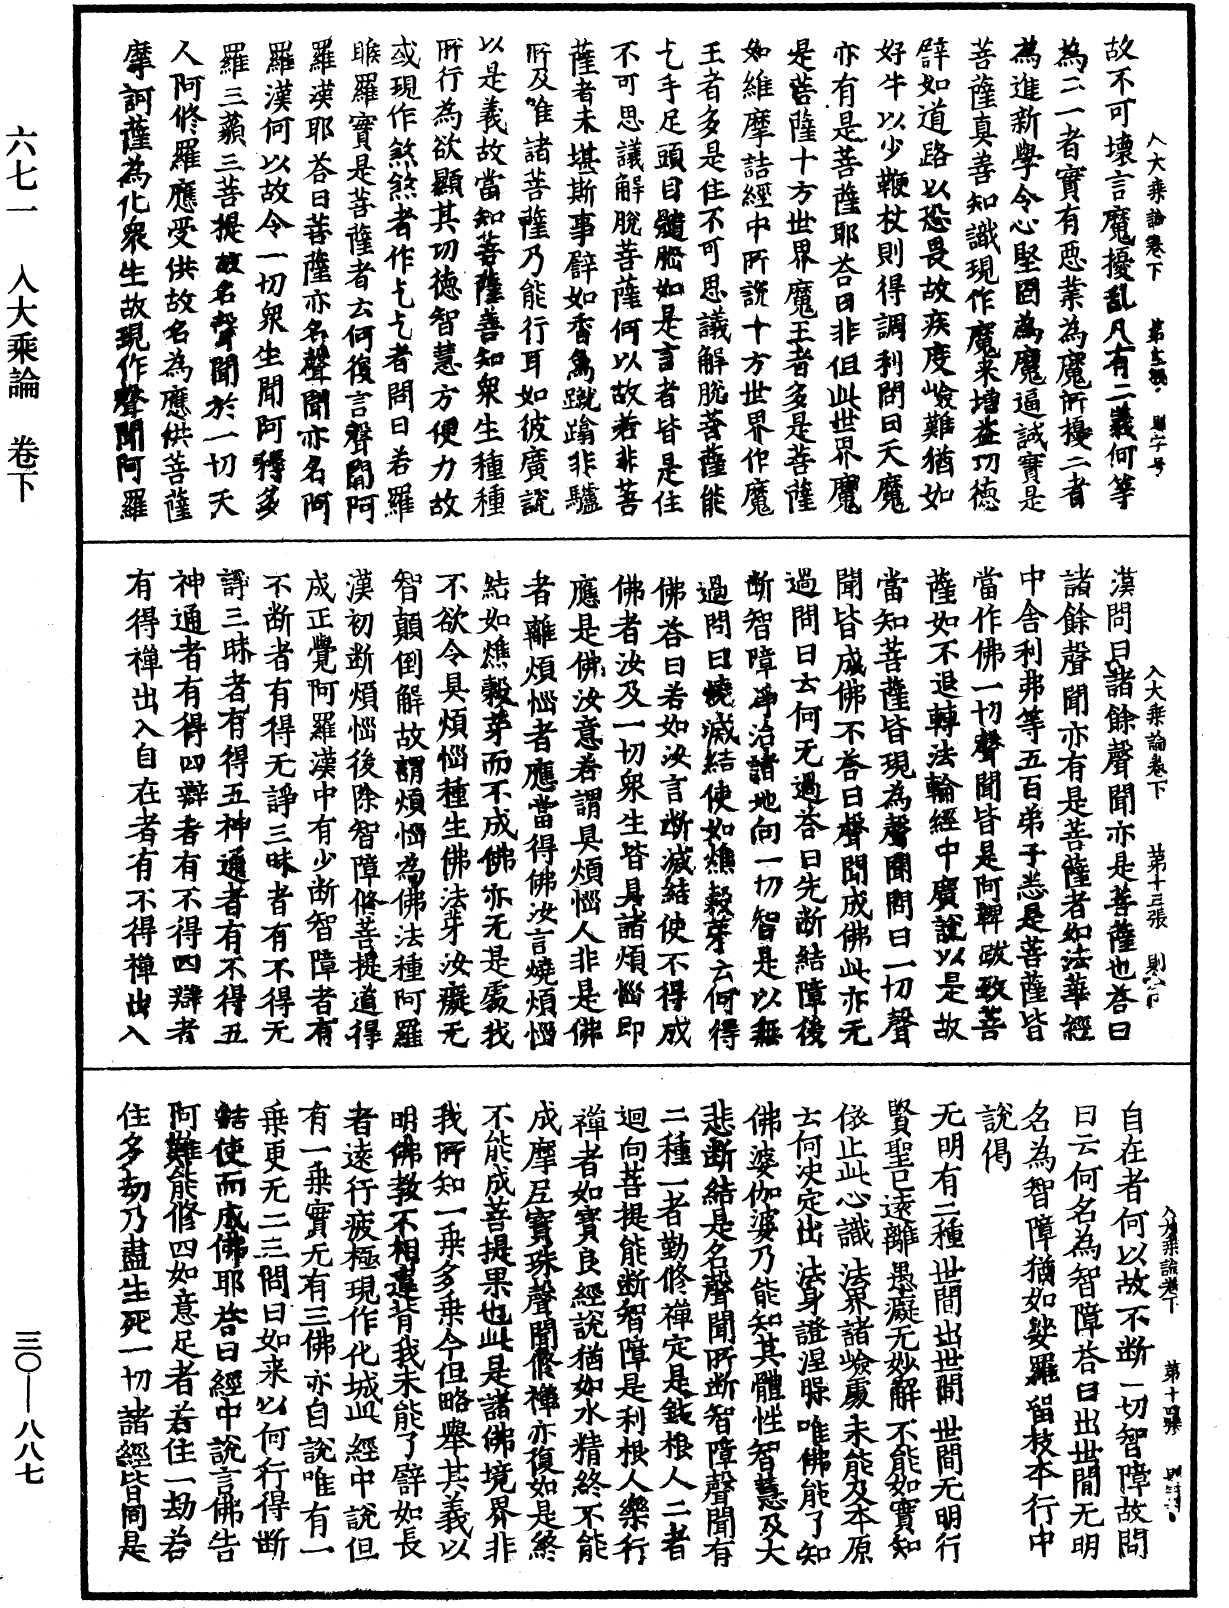 六七一　入大乘論　卷下
三〇—八八七
入大乘論卷下　第　張　則字号
故不可壞言魔擾乱凡有二義何等
為二一者實有惡業為魔所擾二者
為進新學令心堅固為魔逼誠實是
菩薩真善知識現作魔来增益功德
辟如道路以恐畏故疾度嶮難猶如
好牛以少鞭杖則得調利問曰天魔
亦有是菩薩耶荅曰非但此世界魔
是菩薩十方世界魔王者多是菩薩
如維摩詰經中所說十方世界作魔
王者多是住不可思議解脫菩薩能
乞手足頭目髓腦如是言者皆是住
不可思議解脫菩薩何以故若非菩
薩者未堪斯事辟如香象蹴蹋非驢
所及唯諸菩薩乃能行耳如彼廣說
以是義故當知菩薩善知衆生種種
所行為欲顯其功德智慧方便力故
或現作煞煞者作乞乞者問曰若羅
睺羅實是菩薩者云何復言聲聞阿
羅漢耶荅曰菩薩亦名聲聞亦名阿
羅漢何以故令一切衆生聞阿耨多
羅三藐三菩提故名聲聞於一切天
人阿修羅應受供故名為應供菩薩
摩訶薩為化衆生故現作聲聞阿羅
入大乘論卷下　第十三張　則字号
漢問曰諸餘聲聞亦是菩薩也荅曰
諸餘聲聞亦有是菩薩者如法華經
中舍利弗等五百弟子悉是菩薩皆
當作佛一切聲聞皆是阿鞞跋致菩
薩如不退轉法輪經中廣說以是故
當知菩薩皆現為聲聞問曰一切聲
聞皆成佛不荅曰聲聞成佛此亦无
過問曰云何无過荅曰先断結障後
断智障淨治諸地向一切智是以無
過問曰燒滅結使如燋穀芽云何得
佛荅曰若如汝言断滅結使不得成
佛者汝及一切衆生皆具諸煩惱即
應是佛汝意若謂具煩惱人非是佛
者離煩惱者應當得佛汝言燒煩惱
結如燋穀芽而不成佛亦无是處我
不欲令具煩惱種生佛法芽汝癡无
智顛倒解故謂煩惱為佛法種阿羅
漢初断煩惱後除智障修菩提道得
成正覺阿羅漢中有少断智障者有
不断者有得无諍三昧者有不得无
諍三昧者有得五神通者有不得五
神通者有得四辯者有不得四辯者
有得禪出入自在者有不得禪出入
入大乘論卷下　第十四張
自在者何以故不断一切智障故問
曰云何名為智障荅曰出世間无明
名為智障猶如娑羅留枝本行中
說偈
无明有二種世間出世間世間无明行
賢聖已遠離愚癡无妙解不能如實知
依止此心識法界諸嶮處未能及本原
云何決定出法身證涅槃唯佛能了知
佛婆伽婆乃能知其體性智慧及大
悲断結是名聲聞所断智障聲聞有
二種一者勤修禪定是鈍根人二者
迴向菩提能断智障是利根人樂行
禪者如寶良經說猶如水精終不能
成摩尼寶珠聲聞修禪亦復如是終
不能成菩提果也此是諸佛境界非
我所知一乘多乘今但略舉其義以
明佛教不相違背我未能了辟如長
者遠行疲極現作化城此經中說但
有一乘實无有三佛亦自說唯有一
乘更无二三問曰如来以何行得断
結使而成佛耶荅曰經中說言佛告
阿難能修四如意足者若住一劫若
住多劫乃盡生死一切諸經皆同是